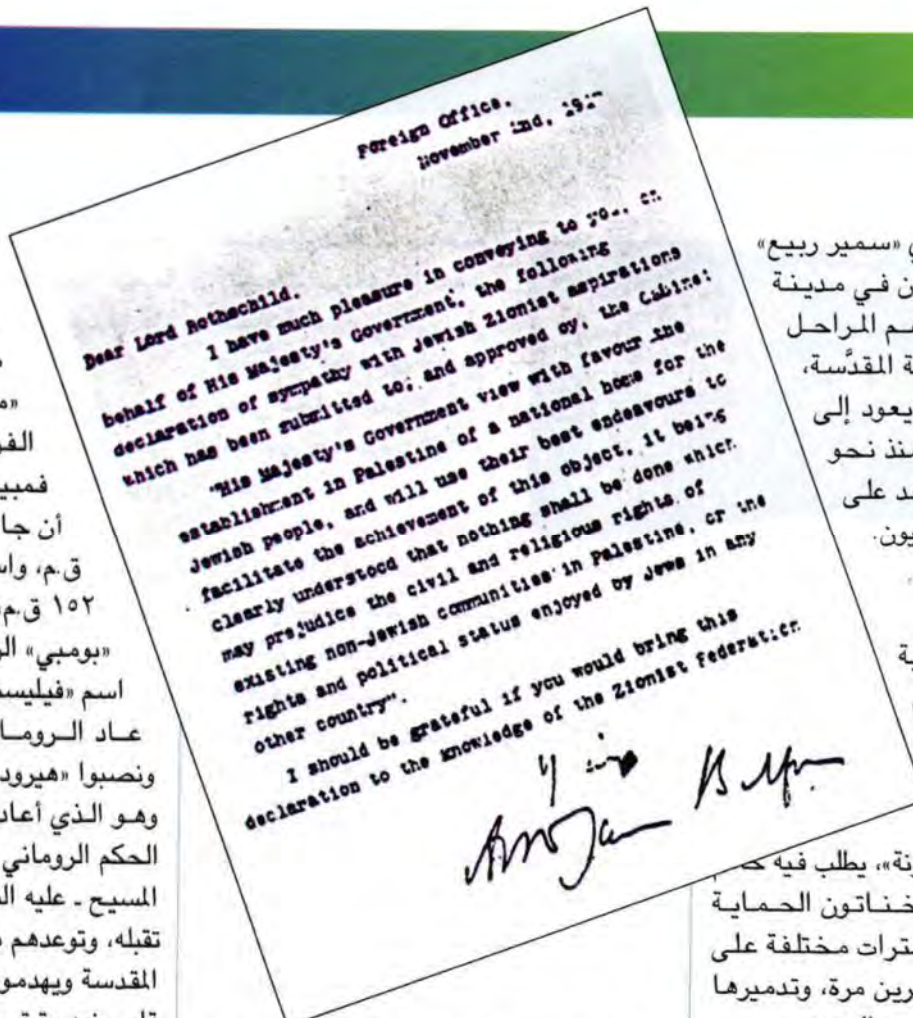 Foreign Office,
November 2nd, 1917
Dear Lord Rothschild,
I have much pleasure in conveying to you, on
behalf of His Majesty's Government, the following
declaration of sympathy with Jewish Zionist aspirations
which has been submitted to, and approved by, the Cabinet
"His Majesty's Government view with favour the
establishment in Palestine of a national home for the
Jewish people, and will use their best endeavours to
facilitate the achievement of this object, it being
clearly understood that nothing shall be done which
may prejudice the civil and religious rights of
existing non-Jewish communities in Palestine, or the
rights and political status enjoyed by Jews in any
other country".
I should be grateful if you would bring this
declaration to the knowledge of the Zionist Federation
«سمير ربيع»
في مدينة
المراحل
المقدَّسة،
يعود إلى
منذ نحو
على
ونة»، يطلب فيه
الحماية
مختلفة على
مرة، وتدميرها
أن
ق.م،
١٥٢ ق.م
«بومبي»
اسم
عاد
ونصبوا
وهو الذي أعاد
الحكم الروماني
المسيح - عليه
تقبله، وتوعدهم
المقدسة